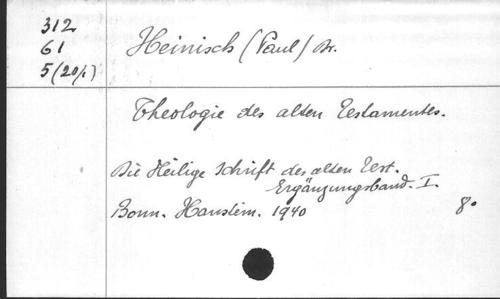 312
61
5(20/1)
Heinisch (Paul) Dr.
Theologie des alten Testamentes.
Die Heilige Schrift des alten Test.
Ergänzungsband. I.
Bonn. Hanstein. 1940
8°